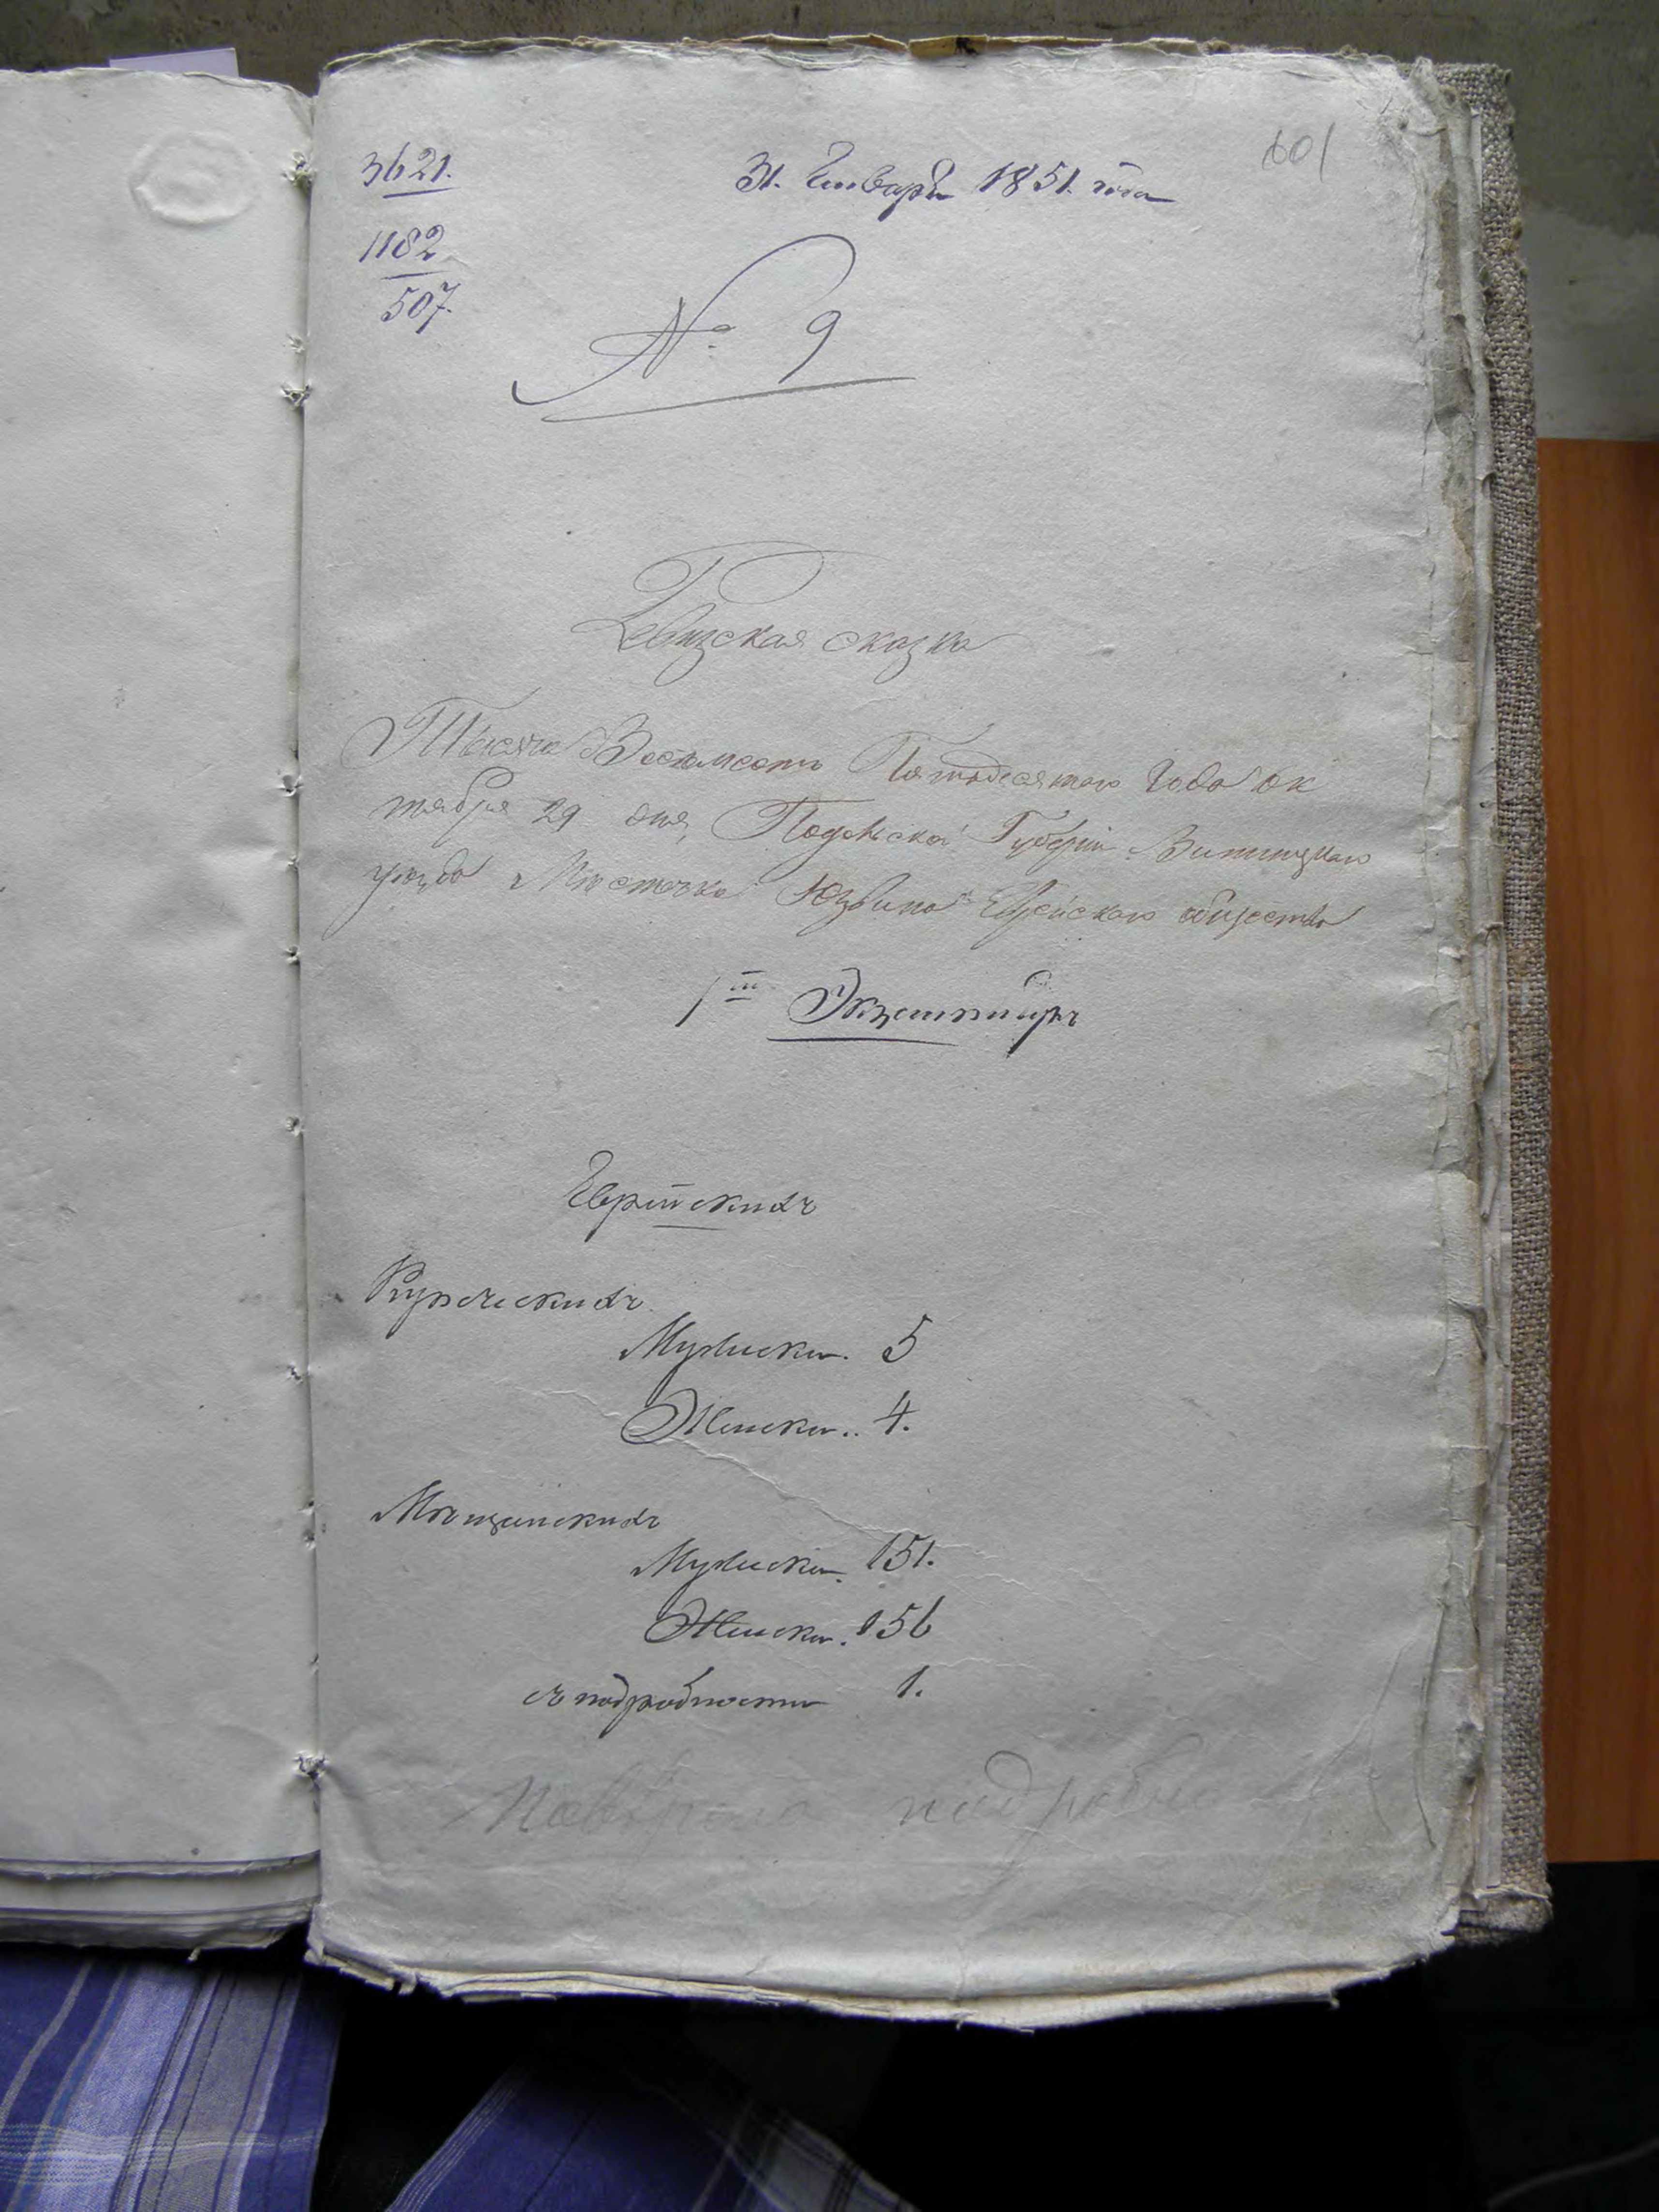 601
3621.
31. Января 1851. года
1182
507.
№ 9
Ревизская сказка
Тысяча Восемьсотъ Пятьдесятаго Года Ок
тября 29 дня, Подольской Губерніи Винницкаго
уѣзда Мѣстечка Юзвина Еврейскаго общества
1й Экземпляръ
Еврейскихъ
Купеческихъ
Мужеска. 5
Женска.. 4.
Мѣщанскихъ
Мужеска. 151.
Женска. 156
съ подробности 1.
подробно